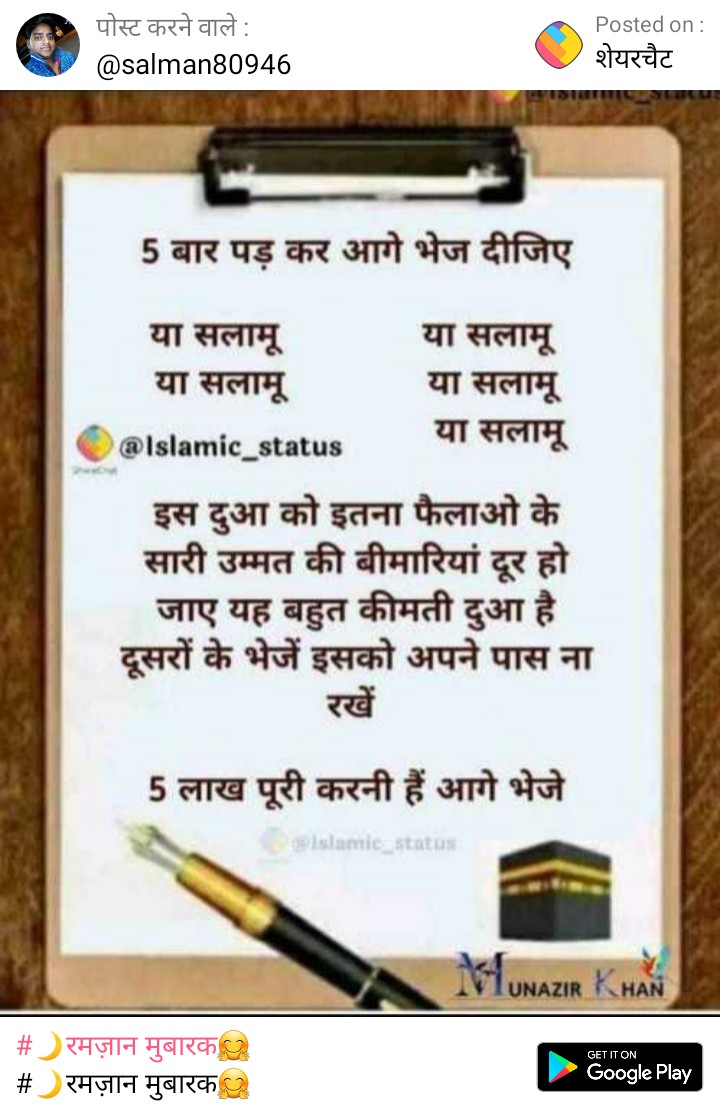 पोस्ट करने वाले :
@salman80946
Posted on :
शेयरचैट
5 बार पड़ कर आगे भेज दीजिए
या सलामू या सलामू
या सलामू या सलामू
या सलामू
@Islamic_status
इस दुआ को इतना फैलाओ के
सारी उम्मत की बीमारियां दूर हो
जाए यह बहुत कीमती दुआ है
दूसरों के भेजें इसको अपने पास ना
रखें
5 लाख पूरी करनी हैं आगे भेजे
@Islamic_status
MUNAZIR KHAN
#🌙रमज़ान मुबारक🤗
#🌙रमज़ान मुबारक🤗
GET IT ON
Google Play